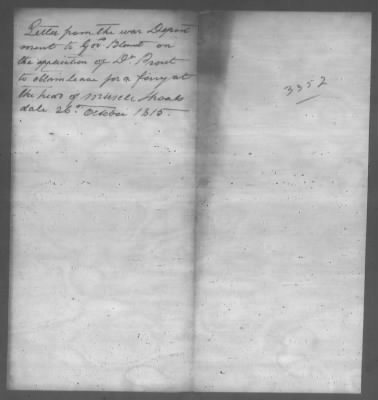 Letter from the war Depart
ment to Gov Blount on
the application of Dr Prout
to obtain leave for a ferry at
the head of Muscle Shoals
date 26th October 1815.
3352